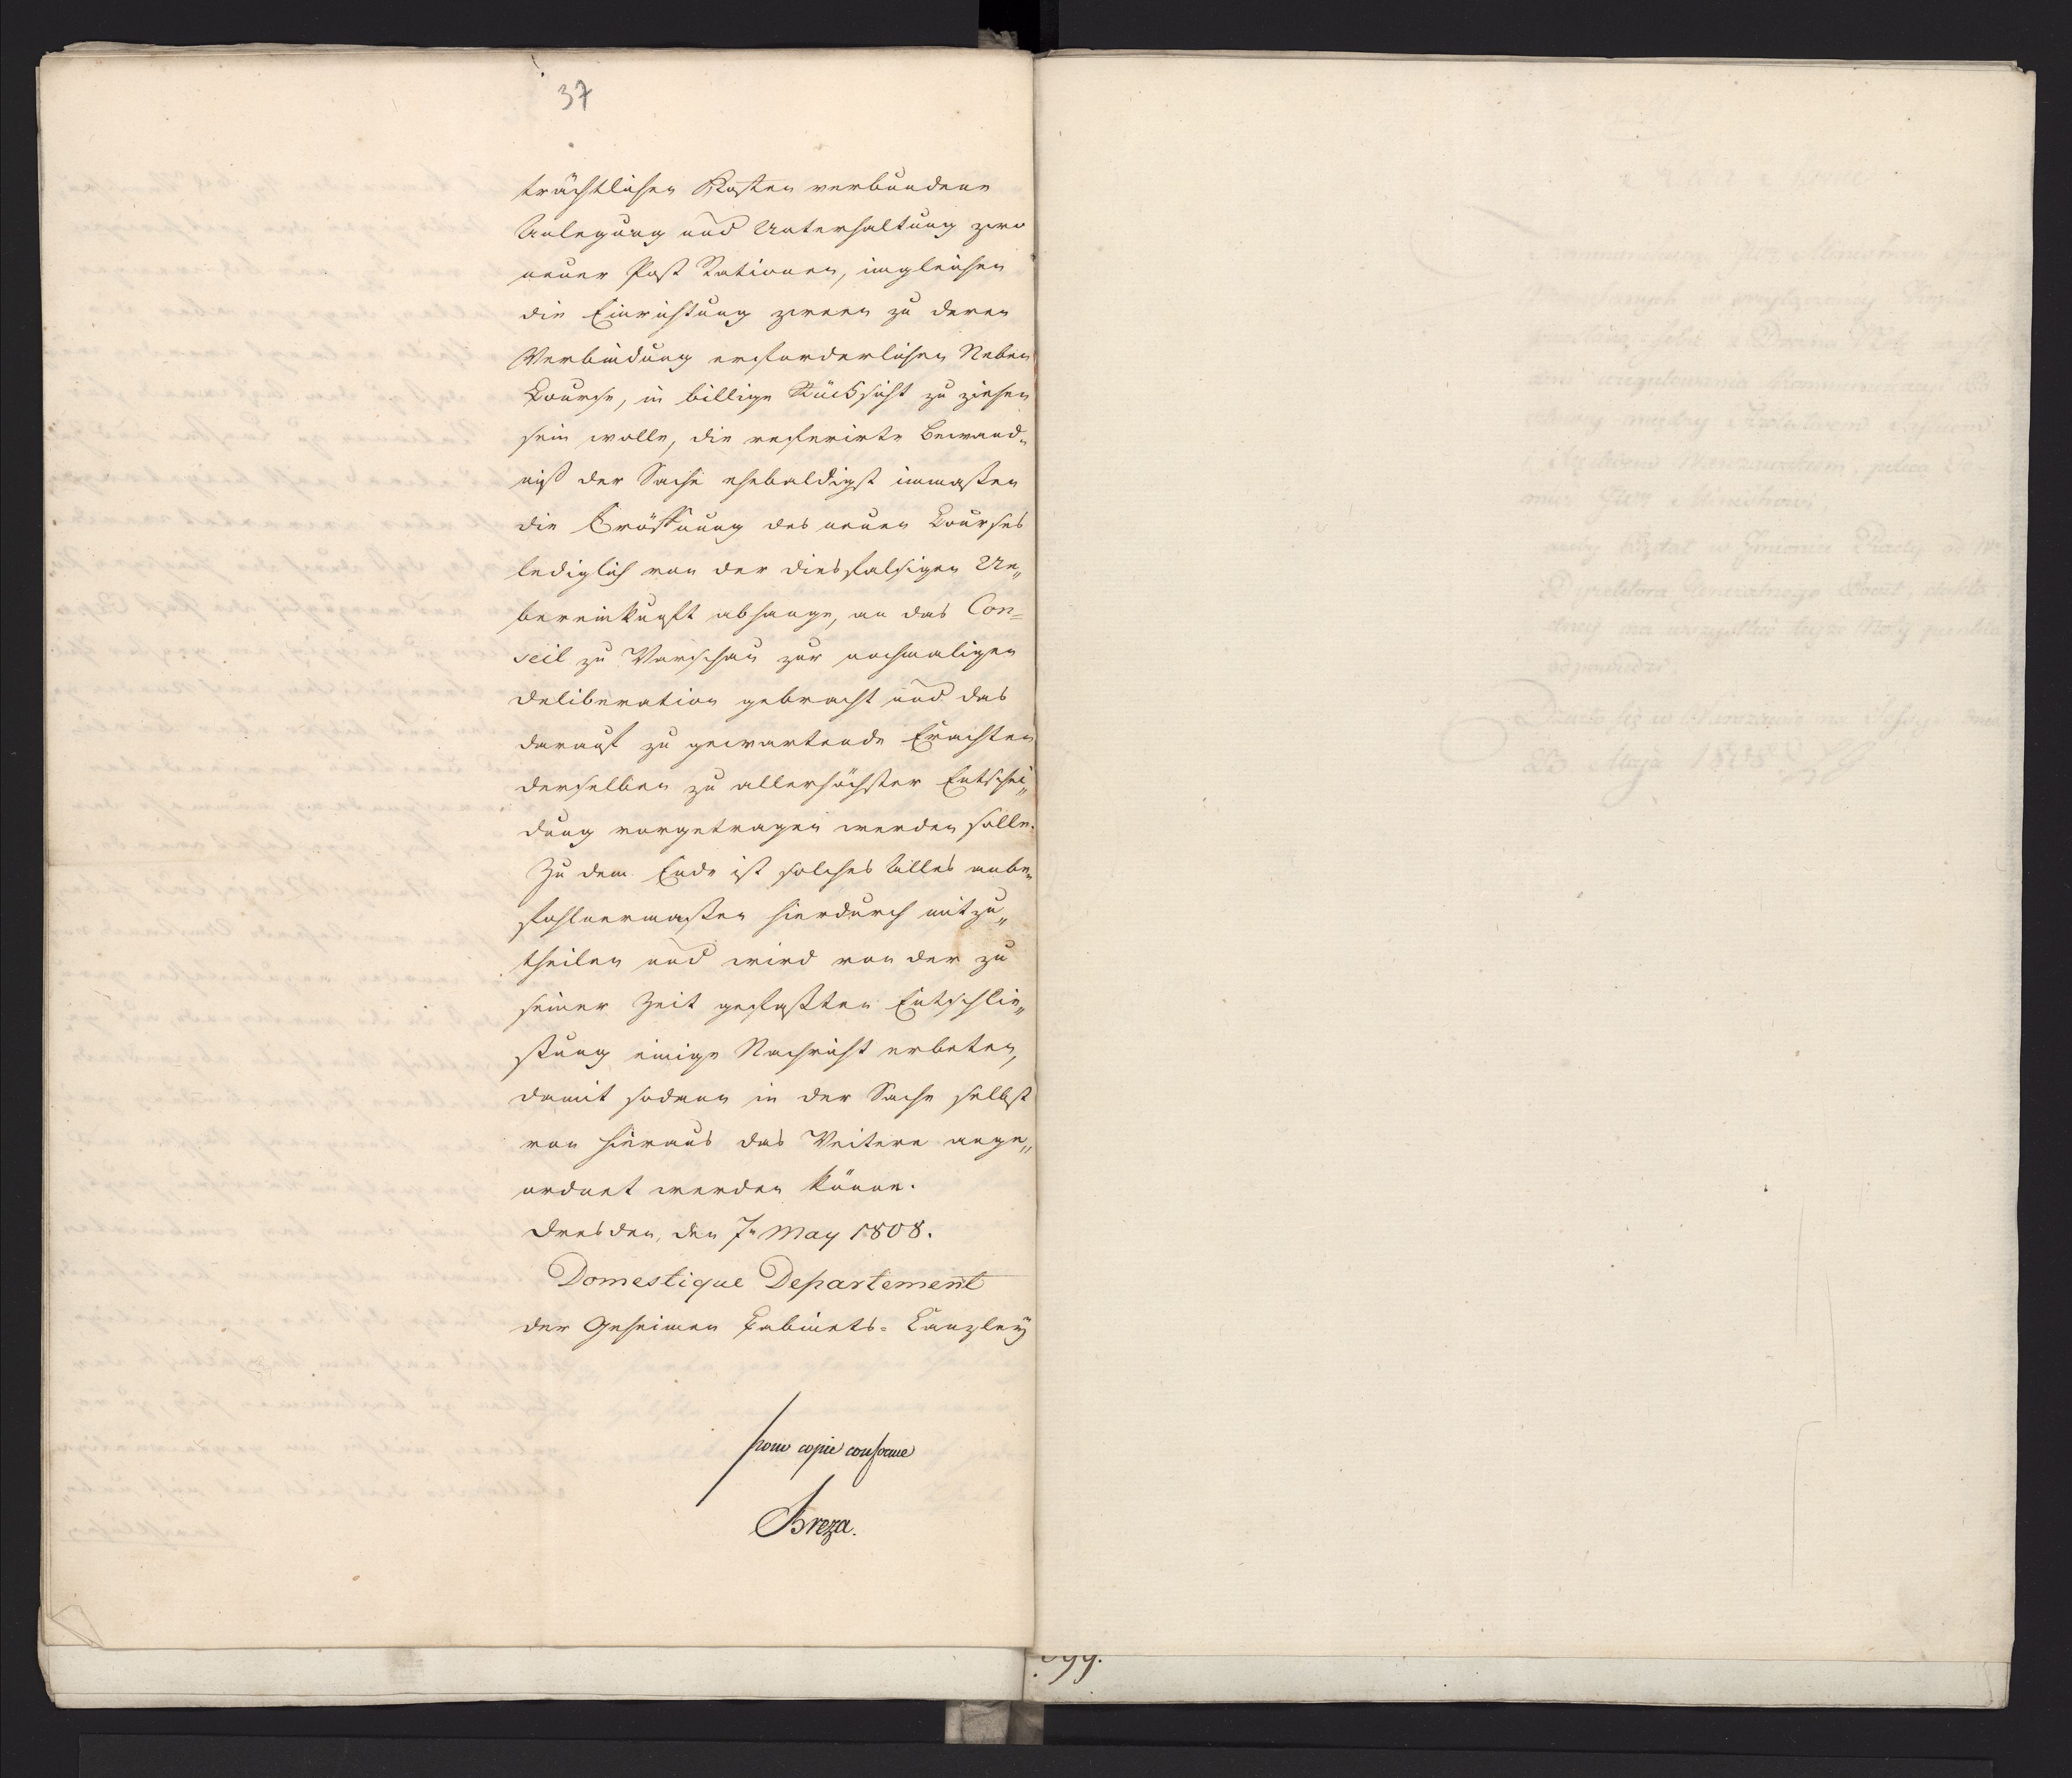 37
trächtlichen Kosten verbundene
Anlegung und Unterhaltung zwo
neuer Post Stationen, imgleichen
die Einrichtung zween zu deren
Verbindung erforderlichen Neben
Course, in billige Rücksicht zu ziehen
sein wolle, die referirte Bewand„
niß der Sache ehebaldigst immaßen
die Eröffnung des neuen Courses
lediglich von der diesfalsigen Ue„
bereinkunft abhange, an das Con=
seil zu Warschau zur nochmaligen
Deliberation gebracht und das
darauf zu gewartende Erachten
derselben zu allerhöchster Entschei„
dung vorgetragen werden solle.
Zu dem Ende ist solches Alles anbe„
fohlnermaßen hierdurch mitzu„
theilen und wird von der zu
seiner Zeit gefaßten Entschlie„
ßung einige Nachricht erbeten,
damit sodann in der Sache selbst
von hieraus das Weitere ange„
ordnet werden könne.
Dresden, den 7n May 1808.
Domestique Departement
der Geheimen Cabinets= Canzley
pour copie conforme
Breza.